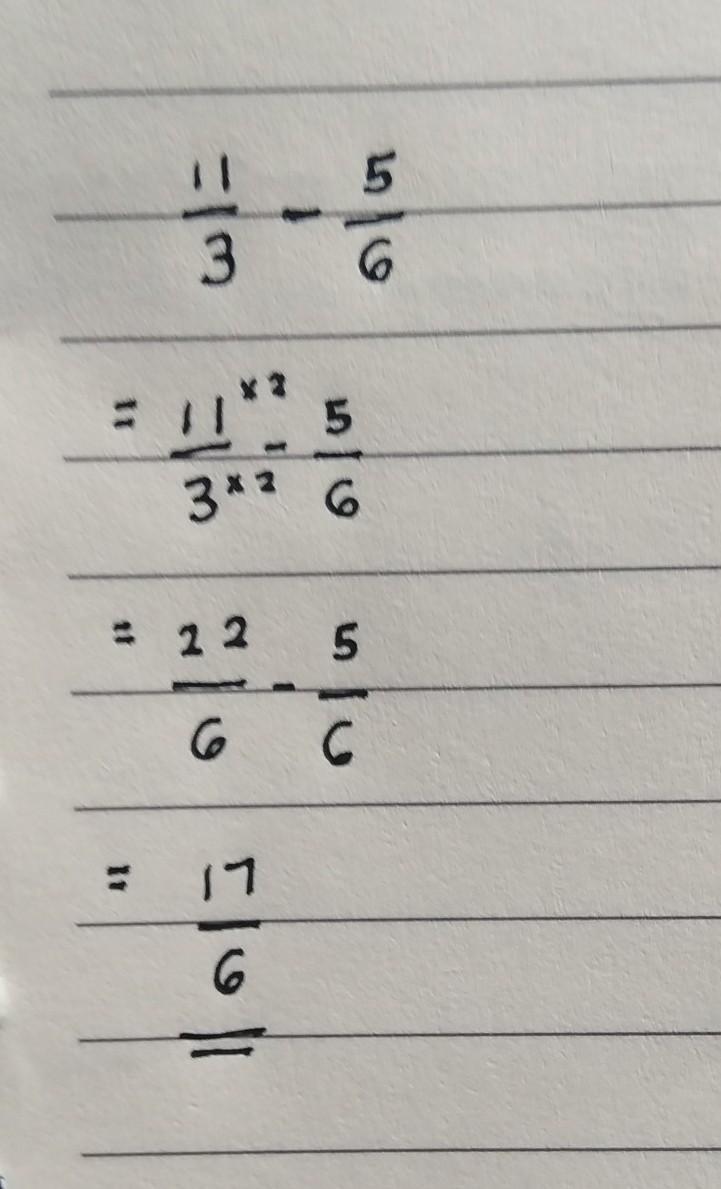 11/3 - 5/6
= 11 x 2/3 x 2 - 5/6
= 22/6 - 5/6
= 17/6